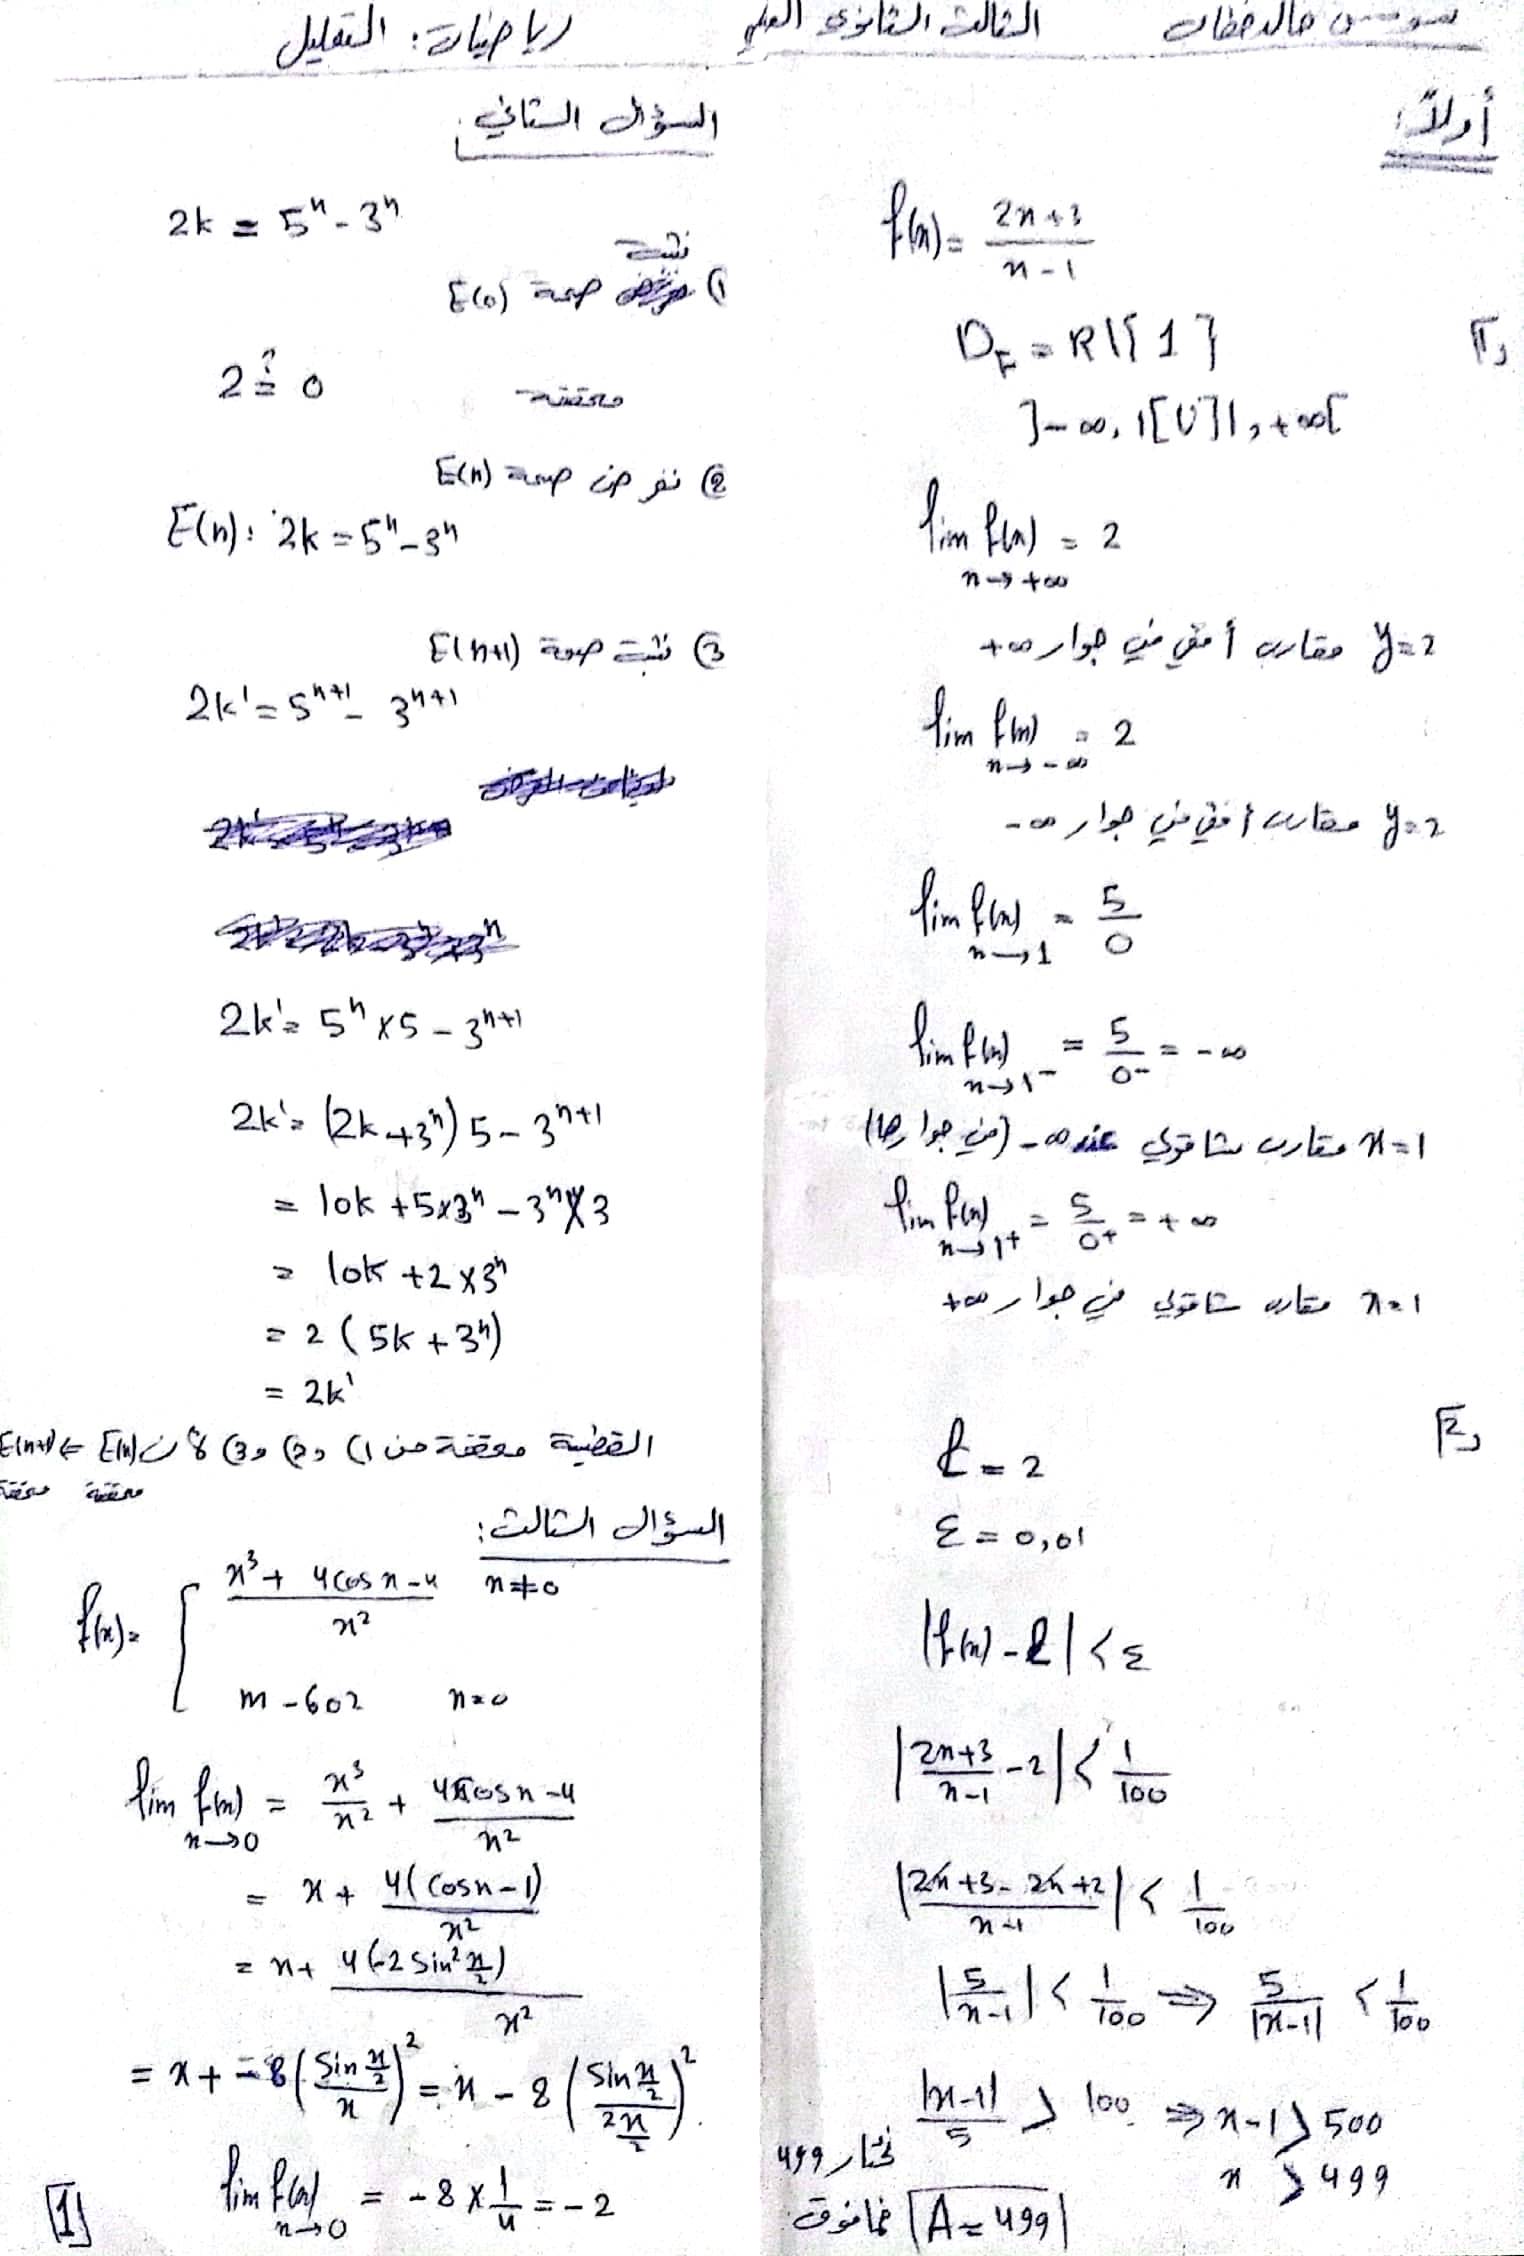 سوسن خالد خطاب الثالث الثانوي العلمي رياضيات: التفليل
أولاً:
f(x) = (2x+3)/(x-1)
1) D_F = R\{1}
]-∞, 1[ U ]1, +∞[
lim f(x) = 2
x→+∞
y=2 مقارب أفقي في جوار +∞
lim f(x) = 2
x→-∞
y=2 مقارب أفقي في جوار -∞
lim f(x) = 5/0
x→1
lim f(x) = 5/0- = -∞
x→1-
x=1 مقارب شاقولي عند -∞ (في جوارها)
lim f(x) = 5/0+ = +∞
x→1+
x=1 مقارب شاقولي في جوار +∞
2) ℓ = 2
ε = 0,01
|f(x) - ℓ| < ε
|(2x+3)/(x-1) - 2| < 1/100
|(2x+3-2x+2)/(x-1)| < 1/100
|5/(x-1)| < 1/100 ⇒ 5/|x-1| < 1/100
|x-1|/5 > 100 ⇒ x-1 > 500
x > 499
نختار 499
A = 499 فما فوق
السؤال الثاني:
2k = 5^n - 3^n
1) نثبت صحة E(0)
2 ≟ 0 محققة
2) نفرض صحة E(n)
E(n): 2k = 5^n - 3^n
3) نثبت صحة E(n+1)
2k' = 5^(n+1) - 3^(n+1)
2k' = 5^n × 5 - 3^(n+1)
2k' = (2k + 3^n) 5 - 3^(n+1)
= 10k + 5×3^n - 3^n × 3
= 10k + 2 × 3^n
= 2 (5k + 3^n)
= 2k'
القضية محققة من 1) و 2) و 3) E(n) ⇒ E(n+1)
محققة محققة
السؤال الثالث:
f(x) = { (x^3 + 4cos x - 4)/x^2 x≠0
m - 602 x=0
lim f(x) = x^3/x^2 + (4cos x - 4)/x^2
x→0
= x + 4(cos x - 1)/x^2
= x + 4(-2 sin² x/2)/x^2
= x + -8 (sin x/2 / x)^2 = x - 8 (sin x/2 / 2x/2)^2
lim f(x) = -8 × 1/4 = -2
x→0
1